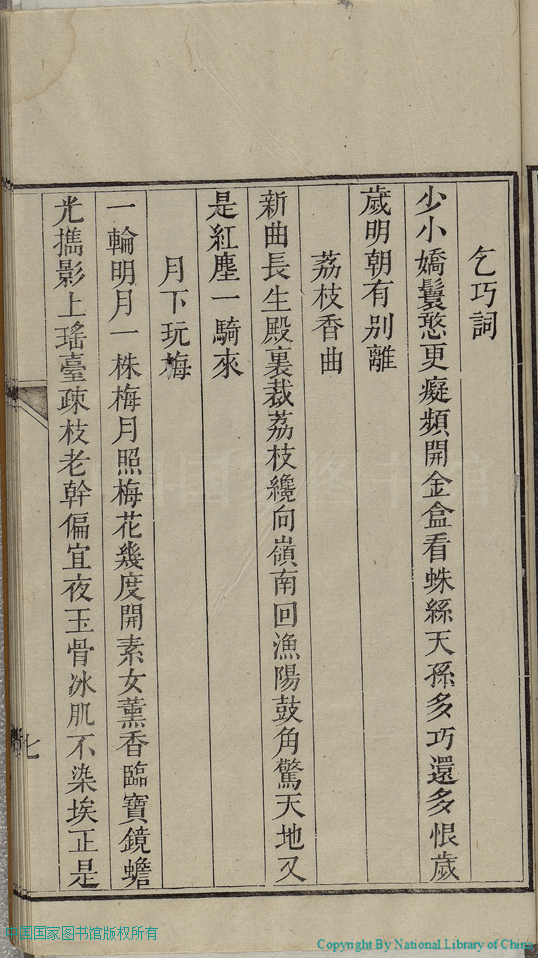 乞巧詞
少小嬌鬟憨更癡頻開金盒看蛛絲天孫多巧還多恨歲
歲明朝有别離
荔枝香曲
新曲長生殿裏裁荔枝纔向嶺南回漁陽鼓角驚天地又
是紅塵一騎來
月下玩梅
一輪明月一株梅月照梅花幾度開素女薰香臨寶鏡蟾
光攜影上瑤臺疎枝老幹偏宜夜玉骨冰肌不染埃正是
七
中国国家图书馆版权所有
Copyright By National Library of China